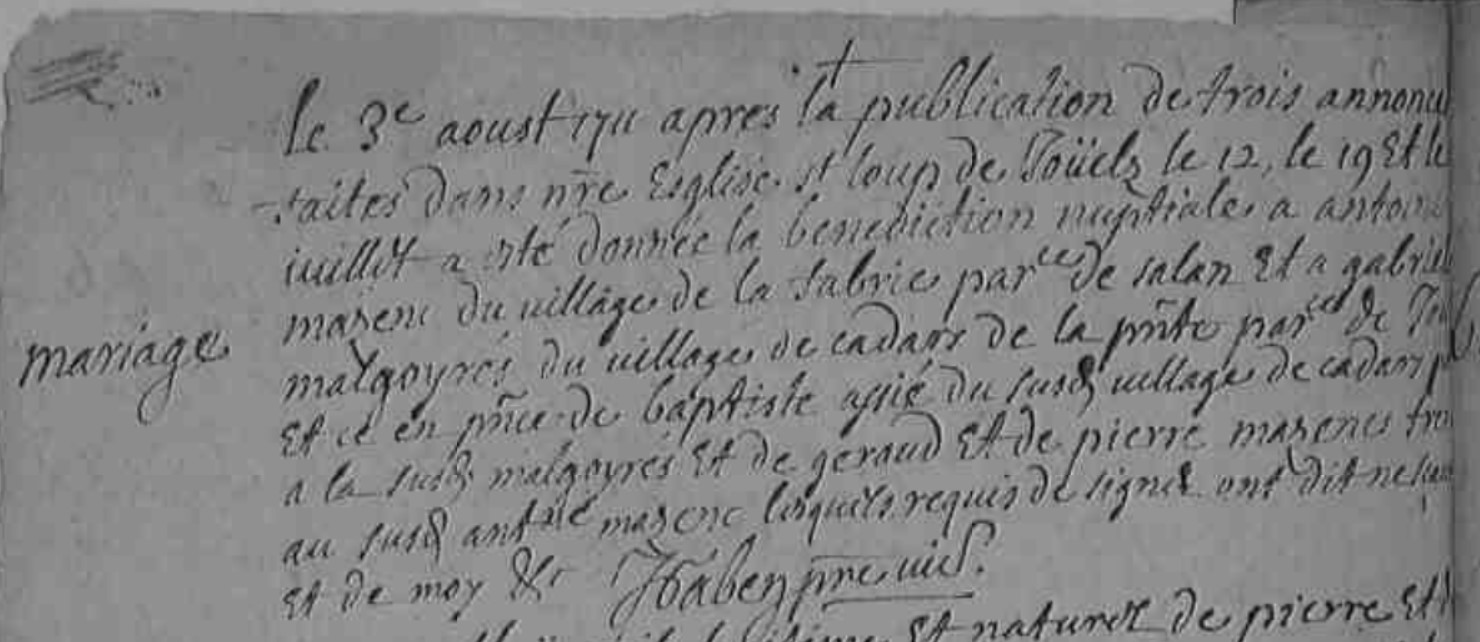 le 3e aoust 1711 apres la publication de trois annonc
faites dans nre Esglise st loup de Toüels le 12, le 19 Et le
iuillet a esté donnée la benediction nuptiale a antoin
mazenc du village de la fabrie par.ce de salan Et a gabriel
mariage
malgoyrés du village de cadars de la pnte par.ce de
Et ce en pnce de baptiste assié du susd village de cadars
a la susd malgoyrés Et de geraud Et de pierre mazencs
au susd antne mazenc lesquels requis de signer ont dit ne
Et de moy &c pne vic.
Et naturel de pierre Et